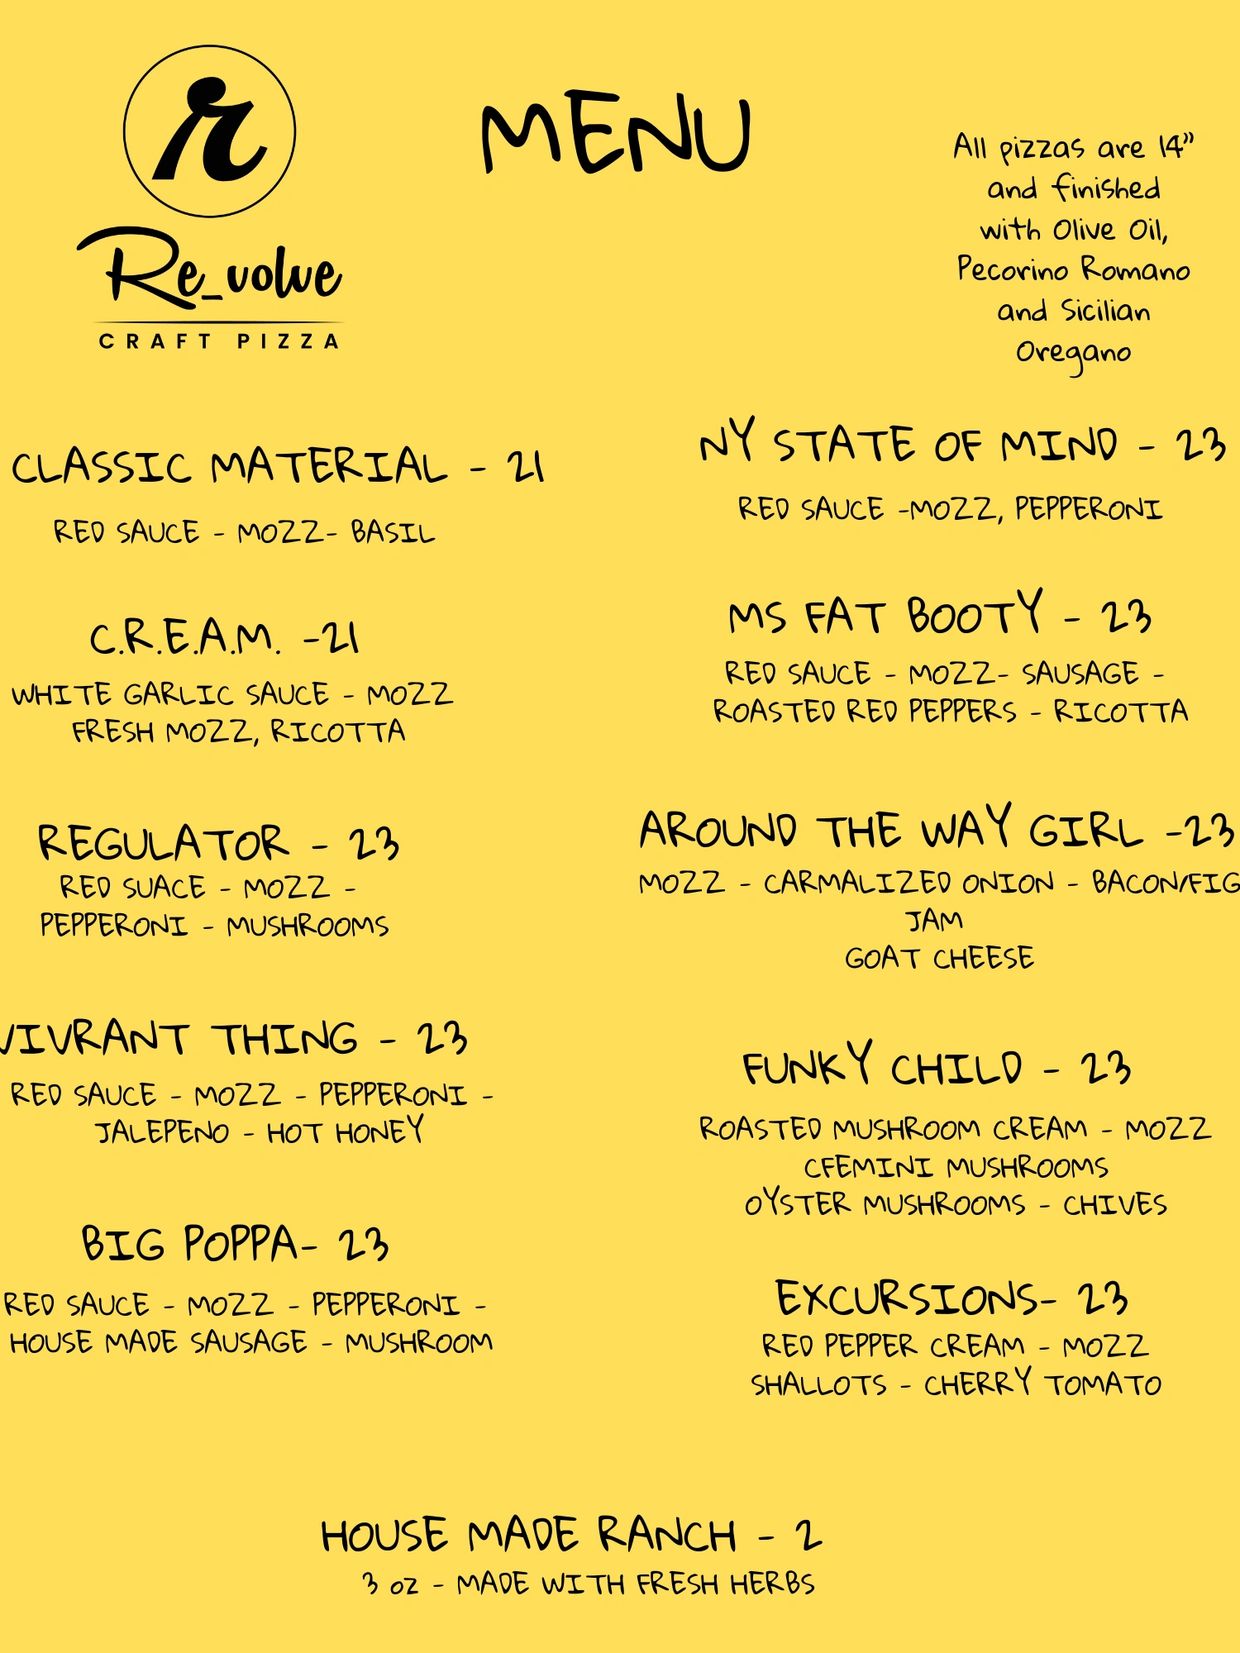 r
Re_volve
CRAFT PIZZA
MENU
All pizzas are 14”
and finished
with Olive Oil,
Pecorino Romano
and Sicilian
Oregano
CLASSIC MATERIAL - 21
RED SAUCE - MOZZ- BASIL
C.R.E.A.M. -21
WHITE GARLIC SAUCE - MOZZ
FRESH MOZZ, RICOTTA
REGULATOR - 23
RED SUACE - MOZZ -
PEPPERONI - MUSHROOMS
VIVRANT THING - 23
RED SAUCE - MOZZ - PEPPERONI -
JALEPENO - HOT HONEY
BIG POPPA- 23
RED SAUCE - MOZZ - PEPPERONI -
HOUSE MADE SAUSAGE - MUSHROOM
NY STATE OF MIND - 23
RED SAUCE -MOZZ, PEPPERONI
MS FAT BOOTY - 23
RED SAUCE - MOZZ- SAUSAGE -
ROASTED RED PEPPERS - RICOTTA
AROUND THE WAY GIRL -23
MOZZ - CARMALIZED ONION - BACON/FIG
JAM
GOAT CHEESE
FUNKY CHILD - 23
ROASTED MUSHROOM CREAM - MOZZ
CFEMINI MUSHROOMS
OYSTER MUSHROOMS - CHIVES
EXCURSIONS- 23
RED PEPPER CREAM - MOZZ
SHALLOTS - CHERRY TOMATO
HOUSE MADE RANCH - 2
3 oz - MADE WITH FRESH HERBS